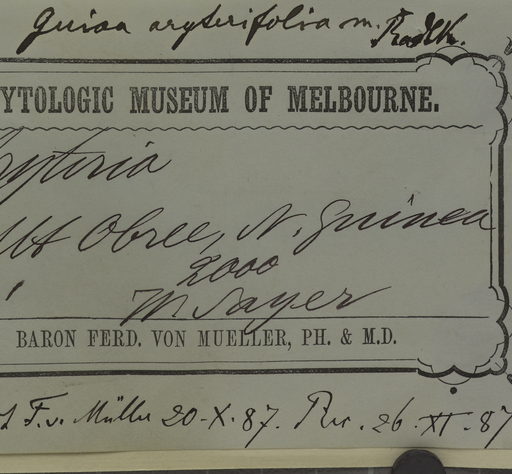 Guioa aryterifolia m. Radlk.
YTOLOGIC MUSEUM OF MELBOURNE.
ryteria
Mt Obree, N. Guinea
2000
W Sayer
BARON FERD. VON MUELLER, PH. & M.D.
F. v. Müller 20-X.87. Rec. 26.XI.87